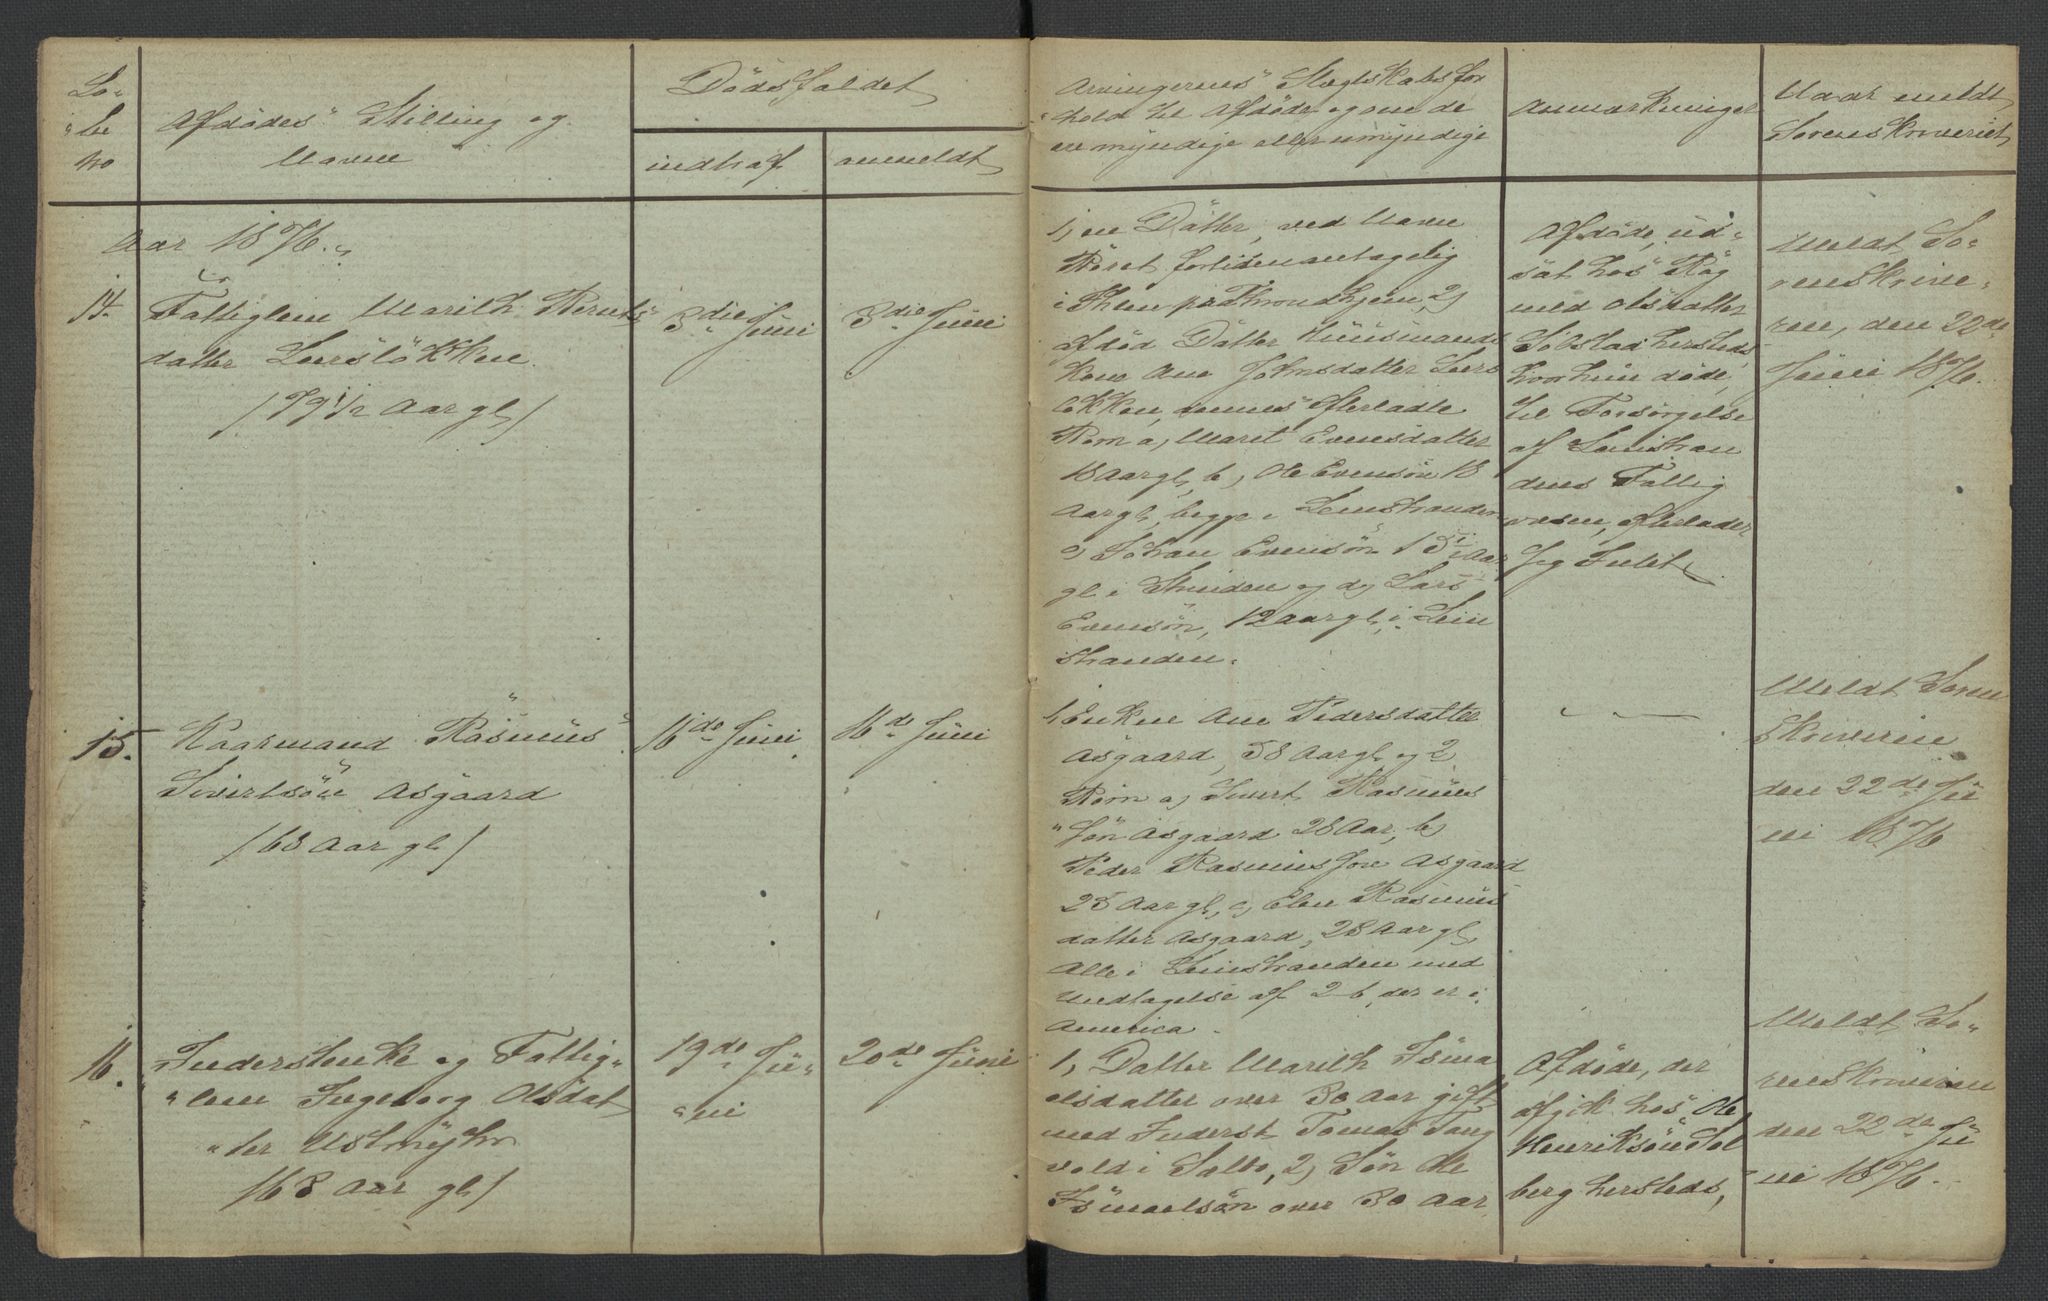 Lo-
be
no
Afdødes Stilling og
Navn
Dödsfaldet
indtraf
anmeldt
Arvingernes Slægtskabsfor
hold til Afdøde og om de
ere myndige eller umyndige
Anmærkninger
Naar meldt
Sorenskriveriet
Aar 1876.
14.
Fattiglem Marith Bernts
datter Leersløkken
/79 1/2 Aar gl/
3die Juni
3die Juni
1, en Datter, ved Navn
Beret fortiden antagelig
i Ihlen pr Throndhjem, 2,
afdød Datter Huusmands
Kone Ane Johnsdatter Leers
løkken, dennes efterladte
Børn a, Maret Evensdatter
18 Aar gl, b, Ole Evensøn 18
Aar gl, begge i Leinstranden
c, Johan Evensøn 15 Aar
gl i og d, Lars
Evensøn, 12 Aar gl i Lein
stranden.
Afdøde, ud-
sat hos
med Olsdatter
Solstad hersteds
hvor hun døde,
til Forsørgelse
af Leinstran
dens Fattig
væsen, efterlader
sig Intet
Meldt So-
renskrive-
ren, den 22de
Juni 1876.
15.
Kaarmand Rasmus
Sivertsön Asgaard
/68 Aar gl/
16de Juni
16de Juni
1, Enken Ane Pedersdatter
Asgaard, 58 Aar gl og 2,
Børn a, Sivert Rasmus
søn Asgaard 28 Aar, b,
Peder Rasmussøn Asgaard
25 Aar gl, c, Elen Rasmus
datter Asgaard, 28 Aar gl,
Alle i Leinstranden med
Undtagelse af 2 b, der er i
America.
Meldt Soren
skriveren
den 22de Ju
ni 1876
16.
Inderstenke og Fattig-
lem Ingeborg Olsdat
ter Ustmyhr
/63 Aar gl/
19de Ju-
ni
20de Juni
1, Datter Marith Isma
elsdatter over 30 Aar gift
med Inderst Tomas Tang
vold i Selbo, 2, Søn Ole
Ismaelsøn over 30 Aar,
Afdøde, der
afgik hos Ole
Henriksön Sol
berg hersteds,
Meldt So-
renskriveren
den 22de Ju
ni 1876.